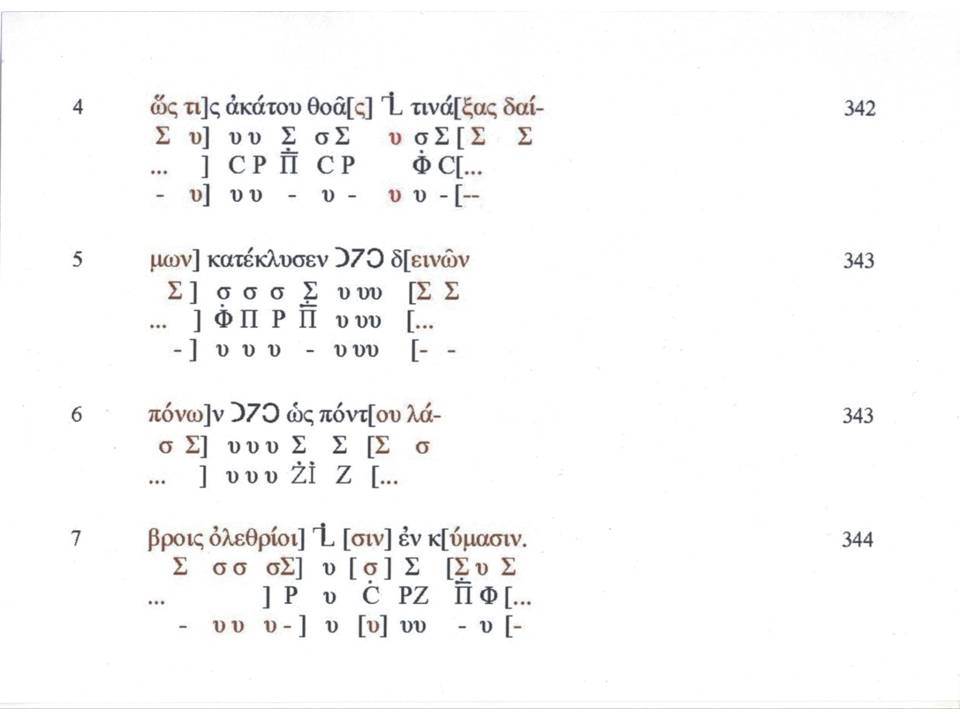 4 ὥς τι]ς ἀκάτου θοᾶ[ς] Ἰ̔Ŀ τινά[ξας δαί- 342
Σ υ] υ υ Σ σ Σ υ σ Σ [ Σ Σ
... ] C Ρ Π̣̅ C Ρ Φ̇ C[...
- υ] υ υ - υ - υ υ -[--
5 μων] κατέκλυσεν Ɔ7Ɔ δ[εινῶν 343
Σ ] σ σ σ Σ υ υυ [Σ Σ
... ] Φ̇ Π Ρ Π̣̅ υ υυ [...
-] υ υ υ - υ υυ [- -
6 πόνω]ν Ɔ7Ɔ ὡς πόντ[ου λά- 343
σ Σ] υ υ υ Σ Σ [Σ σ
... ] υ υ υ ŻİΖ [...
7 βροις ὀλεθρίοι] Ŀ [σιν] ἐν κ[ύμασιν. 344
Σ σσ σΣ] υ [ σ ] Σ [Σ υ Σ
... ] Ρ υ Ċ ΡΖ Π̅ Φ [...
- υ υ υ-] υ [υ] υυ - υ [-